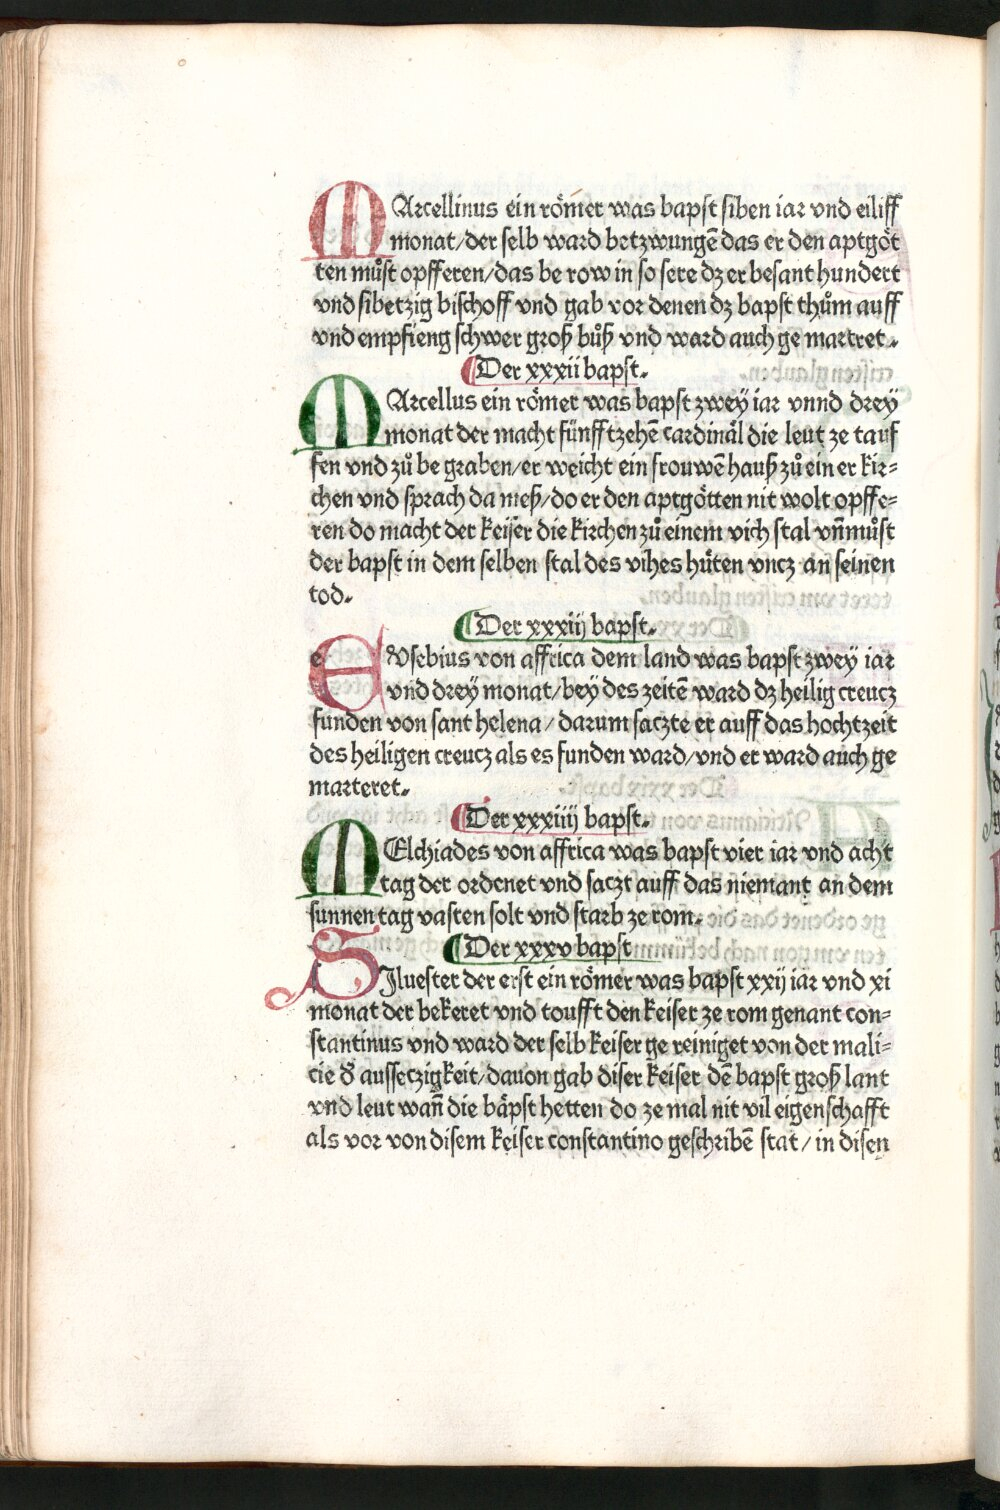 MArcellinus ein roͤmer was bapst siben iar vnd eiliff
monat/der selb ward betzwungē das er den aptgoͤt
ten muͦst opfferen/das be row in so sere dz er besant hundert
vnd sibetzig bischoff vnd gab vor denen dz bapst thuͦm auff
vnd empfieng schwer groß buͦß vnd ward auch ge martret.
Der xxxii bapst.
MArcellus ein roͤmer was bapst zwey iar vnnd drey
monat der macht fünfftzehē cardinaͤl die leut ze tauf
fen vnd zuͦ be graben/er weicht ein frouwē hauß zuͦ ein er kir=
chen vnd sprach da meß/do er den aptgoͤtten nit wolt opffe=
ren do macht der keiser die kirchen zuͦ einem vich stal vn̄ muͦst
der bapst in dem selben stal des vihes huͤten vncz an seinen
tod.
Der xxxiij bapst.
eVsebius von affrica dem land was bapst zwey iar
vnd drey monat/bey des zeitē ward dz heilig creucz
funden von sant helena/darum saczte er auff das hochtzeit
des heiligen creucz als es funden ward/vnd er ward auch ge
marteret.
Der xxxiiij bapst.
MElchiades von affrica was bapst vier iar vnd acht
tag der ordenet vnd saczt auff das niemant an dem
sunnen tag vasten solt vnd starb ze rom.
Der xxxv bapst
SIluester der erst ein roͤmer was bapst xxij iar vnd xi
monat der bekeret vnd toufft den keiser ze rom genant con=
stantinus vnd ward der selb keiser ge reiniget von der mali=
cie ð aussetzigkeit/dauon gab diser keiser dē bapst groß lant
vnd leut wan̄ die baͤpst hetten do ze mal nit vil eigenschafft
als vor von disem keiser constantino geschribē stat/in disen